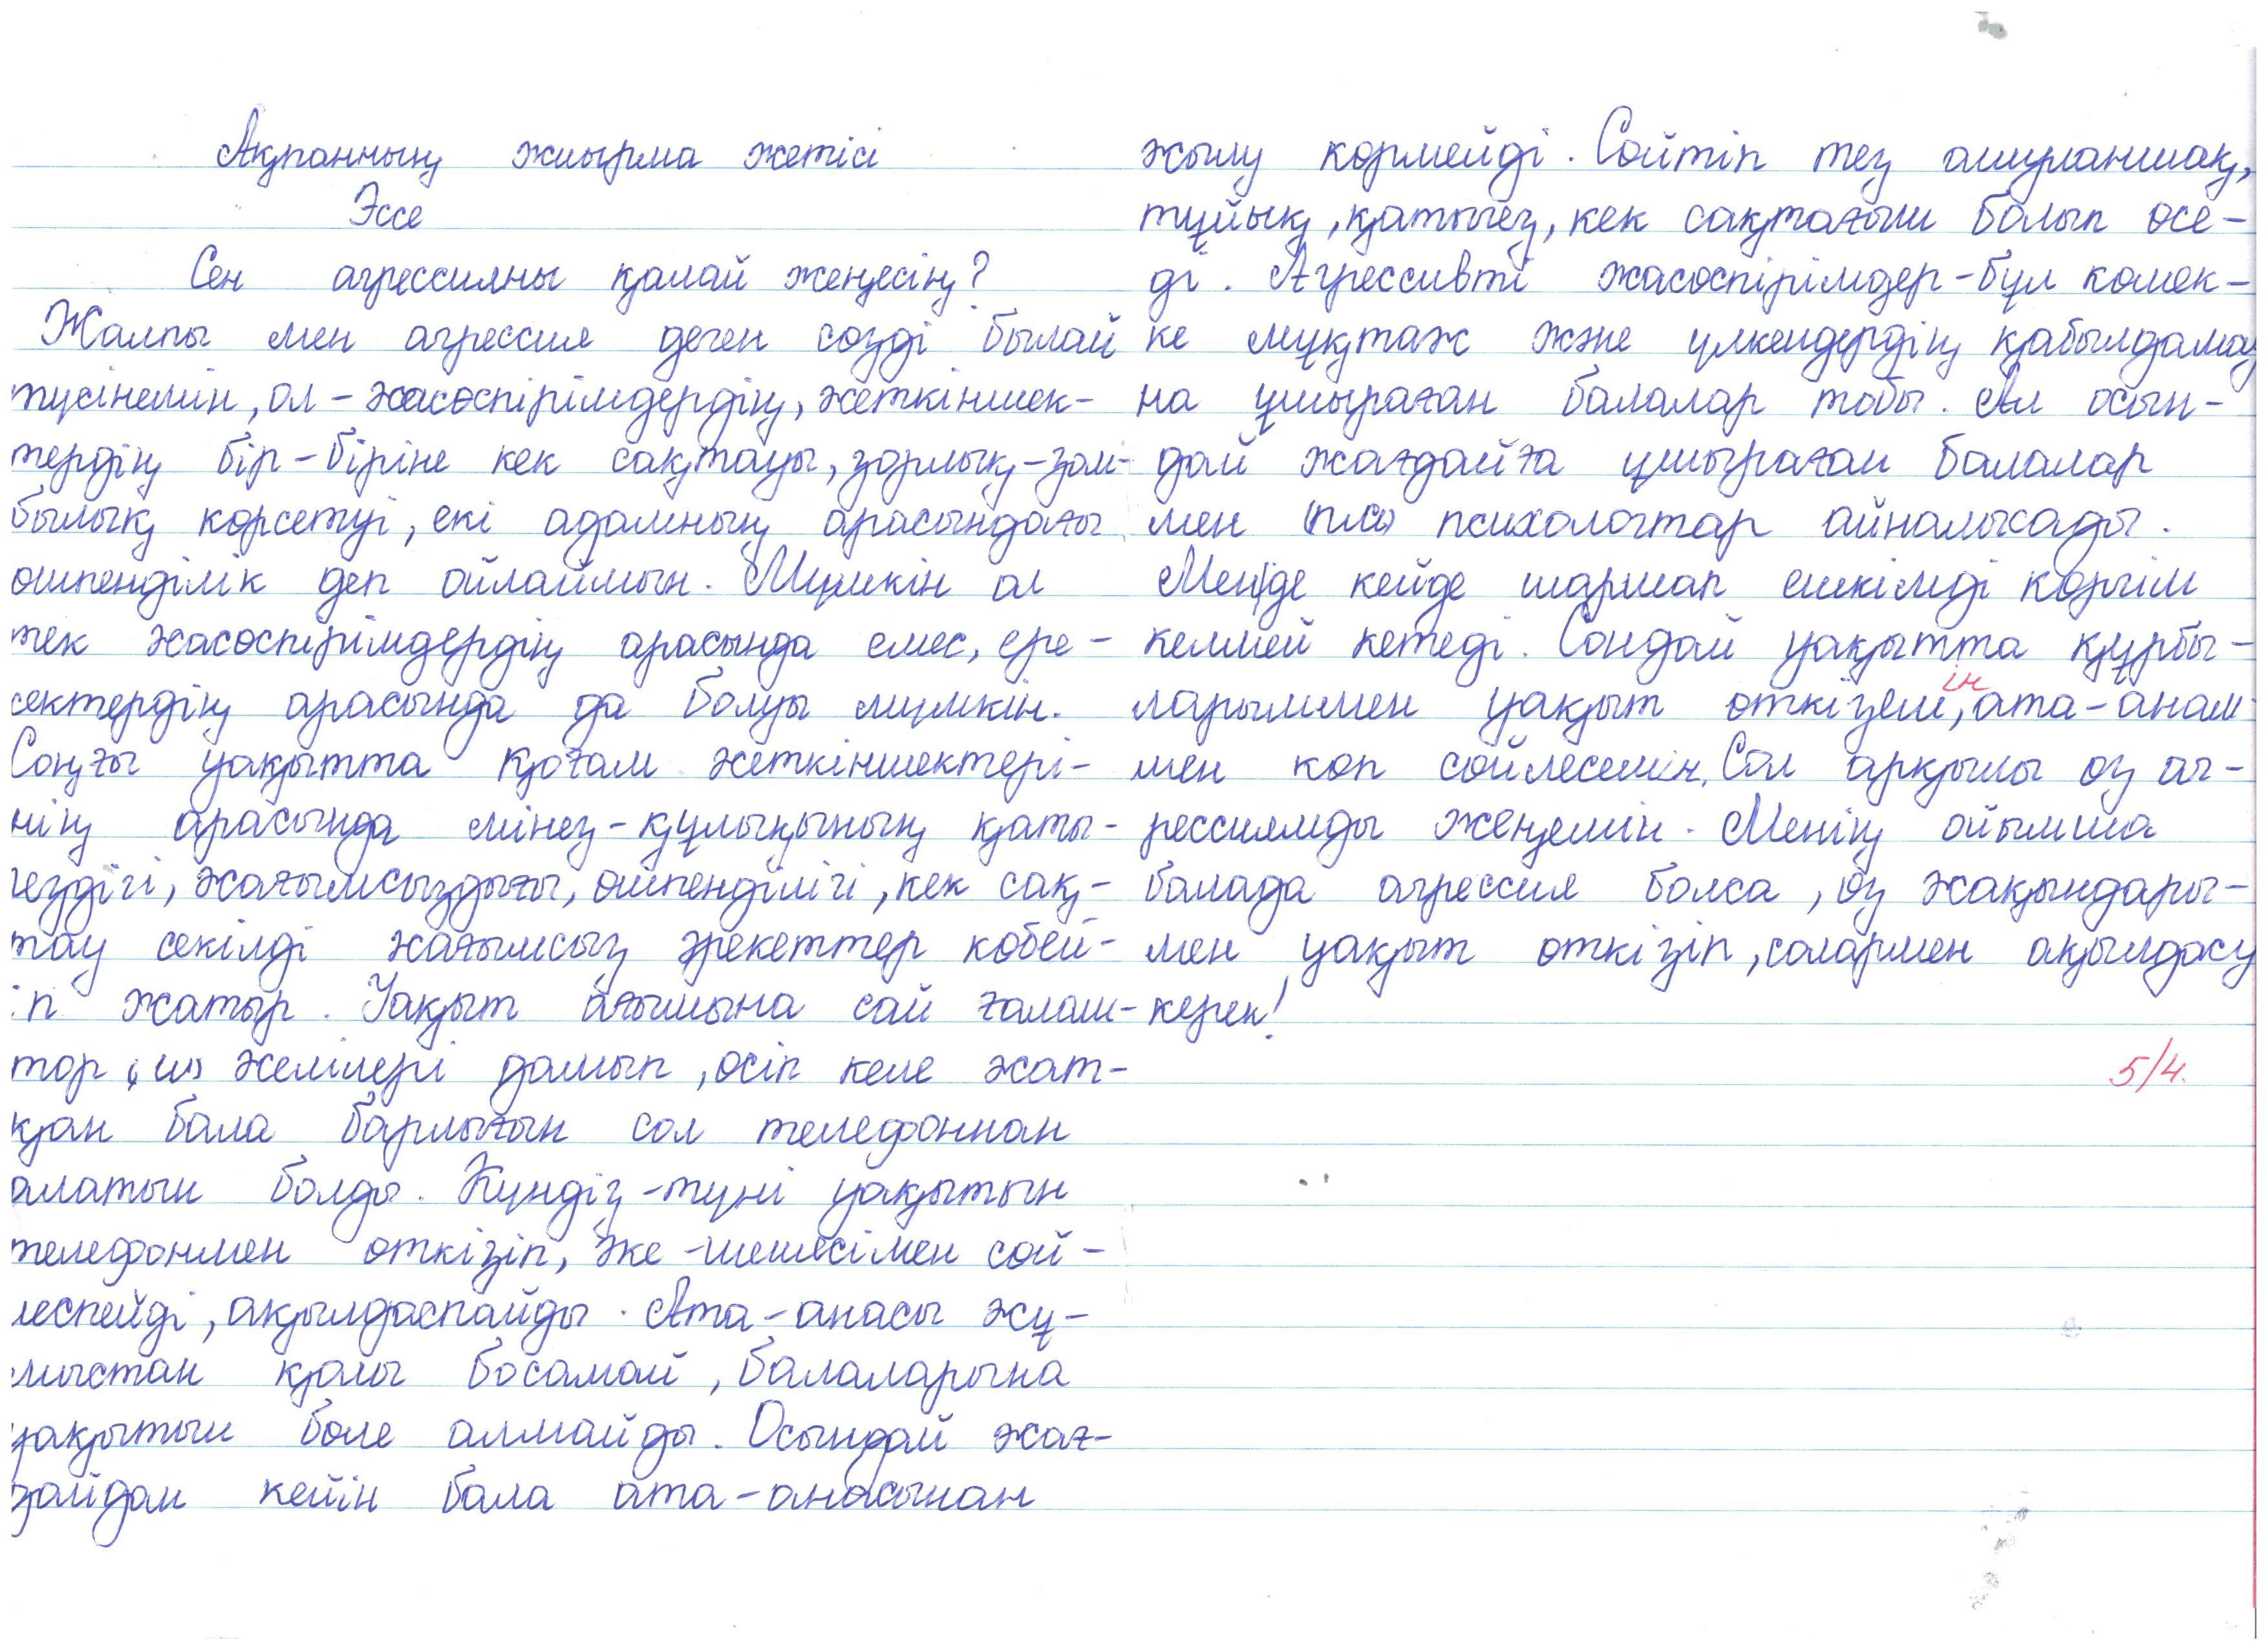 Ақпанның жиырма жетісі
Эссе
Сен агрессияны қалай жеңесің?
Жалпы мен агрессия деген сөзді былай
түсінемін, ол - жасөспірімдердің, жеткіншек-
тердің бір-біріне кек сақтауы, зорлық-зом-
былық көрсетуі, екі адамның арасындағы
өшпенділік деп ойлаймын. Мүмкін ол
тек жасөспірімдердің арасында емес, ере-
сектердің арасында да болуы мүмкін.
Соңғы уақытта қоғам жеткіншектері-
нің арасында мінез-құлықының қаты-
гездігі, жағымсыздығы, өшпенділігі, кек сақ-
тау секілді жағымсыз әрекеттер көбей-
іп жатыр. Уақыт ағымына сай ғалам-
тор (ш) желілері дамып, өсіп келе жат-
қан бала барлығын сол телефоннан
алатын болды. Күндіз-түні уақытын
телефонмен өткізіп, әке-шешесімен сөй-
леспейді, ақылдаспайды. Ата-анасы жұ-
мыстан қолы босамай, балаларына
уақытын бөле алмайды. Осындай жағ-
дайдан кейін бала ата-анасынан
жылу көрмейді. Сөйтіп тез ашуланшақ,
тұйық, қатыгез, кек сақтағыш болып өсе-
ді. Агрессивті жасөспірімдер - бұл көмек-
ке мұқтаж және үлкендердің қабылдамауы
на ұшыраған балалар тобы. Ал осын-
дай жағдайға ұшыраған балалар
мен (пис) психологтар айналысады.
Менде кейде шаршап ешкімді көргім
келмей кетеді. Сондай уақытта құрбы-
ларыммен уақыт өткіземін, ата-анам-
мен көп сөйлесемін. Сол арқылы өз аг-
рессиямды жеңемін. Менің ойымша
балада агрессия болса, өз жақындары-
мен уақыт өткізіп, солармен ақылдасу
керек!
5/4.